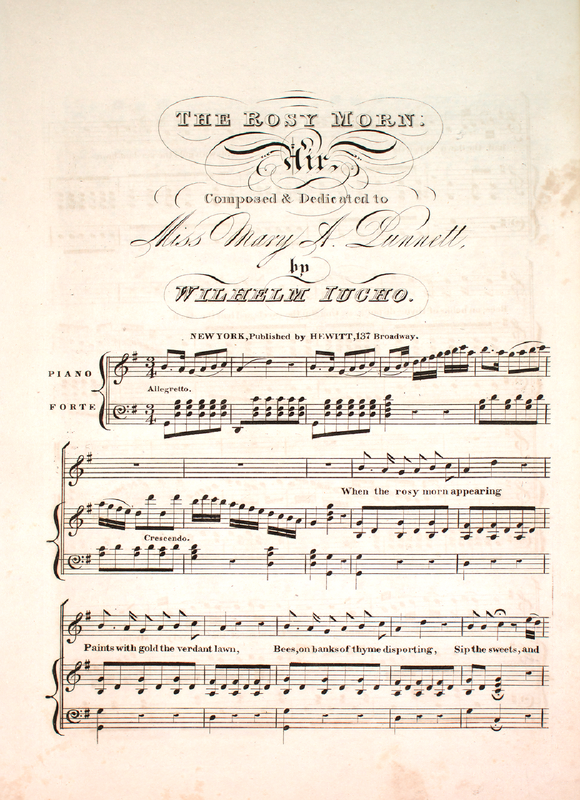 THE ROSY MORN:
Air,
Composed & Dedicated to
Miss Mary A. Dunnett,
by
WILHELM IUCHO.
NEW YORK, Published by HEWITT, 137 Broadway.
PIANO
FORTE
Allegretto.
When the rosy morn appearing
Crescendo.
Paints with gold the verdant lawn, Bees, on banks of thyme disporting, Sip the sweets, and